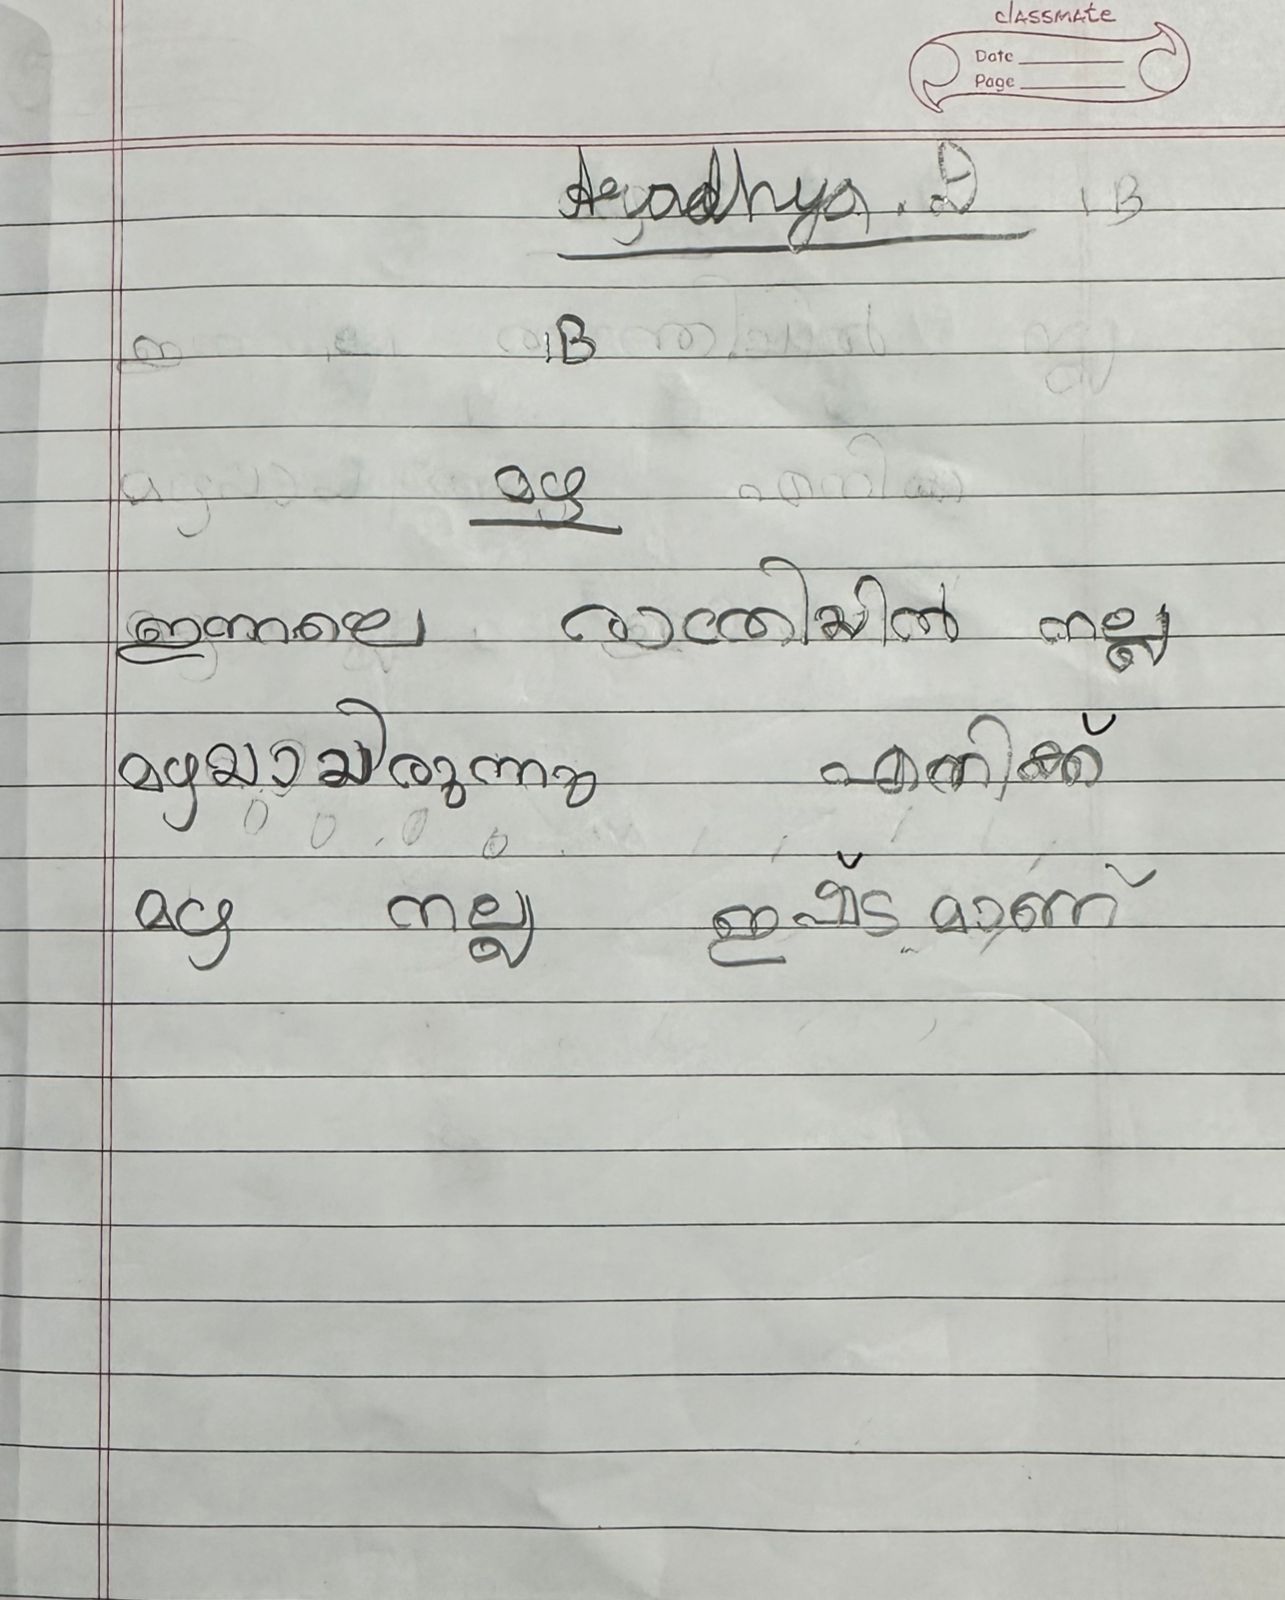 classmate
Date
Page
Ayadhya . D 1B
1B
മഴ
ഇന്നലെ രാത്രിയിൽ നല്ല
മഴയായിരുന്നു എനിക്ക്
മഴ നല്ല ഇഷ്ടമാണ്